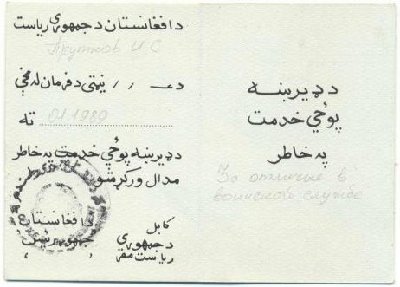 د افغانستان د جمهوري ریاست
Прутков И С
د ... نیټې د فرمان له مخې
01 1989
ته
د ډېر ښه پوځي خدمت په خاطر
مدال ورکړ شو
د افغانستان
د جمهوري
ریاست مقر
کابل
د ډېر ښه
پوځي خدمت
په خاطر
За отличие в
воинской службе